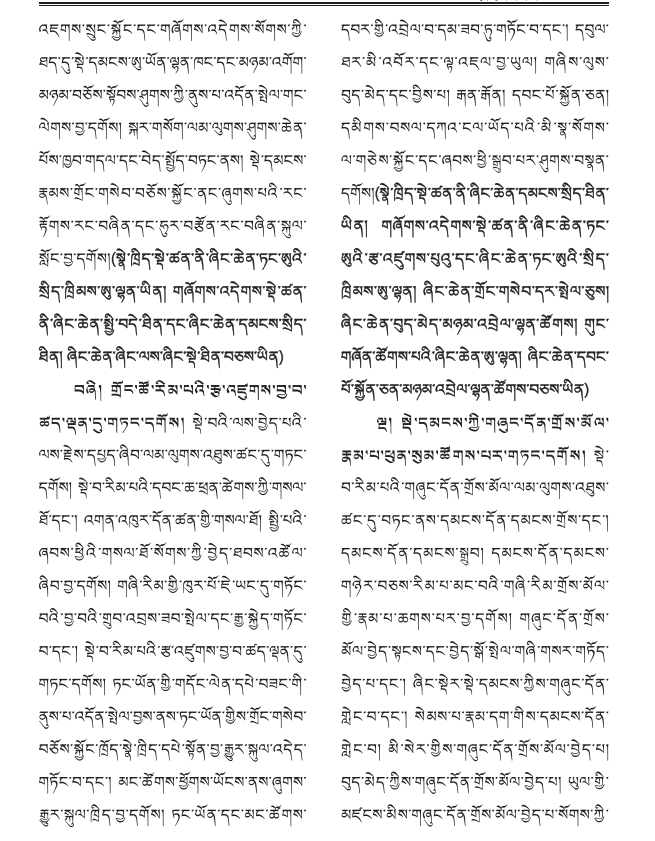 འཇགས་སྲུང་སྐྱོང་དང་གཞོགས་འདེགས་སོགས་ཀྱི་
ཐད་དུ་སྡེ་དམངས་ཨུ་ཡོན་ལྷན་ཁང་དང་མཉམ་འགོག་
མཉམ་བཅོས་སྟོབས་ཤུགས་ཀྱི་ནུས་པ་འདོན་སྤེལ་གང་
ལེགས་བྱ་དགོས། སྐར་གསོག་ལམ་ལུགས་ཤུགས་ཆེན་
པོས་ཁྱབ་གདལ་དང་བེད་སྤྱོད་བཏང་ནས། སྡེ་དམངས་
རྣམས་གྲོང་གསེབ་བཅོས་སྐྱོང་ནང་ཞུགས་པའི་རང་
རྟོགས་རང་བཞིན་དང་ཧུར་བརྩོན་རང་བཞིན་སྐུལ་
སློང་བྱ་དགོས།(སྣེ་ཁྲིད་སྡེ་ཚན་ནི་ཞིང་ཆེན་ཏང་ཨུའི་
སྲིད་ཁྲིམས་ཨུ་ལྷན་ཡིན། གཞོགས་འདེགས་སྡེ་ཚན་
ནི་ཞིང་ཆེན་སྤྱི་བདེ་ཐིན་དང་ཞིང་ཆེན་དམངས་སྲིད་
ཐིན། ཞིང་ཆེན་ཞིང་ལས་ཞིང་སྡེ་ཐིན་བཅས་ཡིན)
བཞི། གྲོང་ཚོ་རིམ་པའི་རྩ་འཛུགས་བྱ་བ་
ཚད་ལྡན་དུ་གཏང་དགོས། སྡེ་བའི་ལས་བྱེད་པའི་
ལས་རྗེས་དཔྱད་ཞིབ་ལམ་ལུགས་འཐུས་ཚང་དུ་གཏང་
དགོས། སྡེ་བ་རིམ་པའི་དབང་ཆ་ཕྲན་ཚེགས་ཀྱི་གསལ་
ཐོ་དང་། འགན་འཁུར་དོན་ཚན་གྱི་གསལ་ཐོ། སྤྱི་པའི་
ཞབས་ཕྱིའི་གསལ་ཐོ་སོགས་ཀྱི་བྱེད་ཐབས་འཚོལ་
ཞིབ་བྱ་དགོས། གཞི་རིམ་གྱི་ཁུར་པོ་ཇེ་ཡང་དུ་གཏོང་
བའི་བྱ་བའི་གྲུབ་འབྲས་ཟབ་སྤེལ་དང་རྒྱ་སྐྱེད་གཏོང་
བ་དང་། སྡེ་བ་རིམ་པའི་རྩ་འཛུགས་བྱ་བ་ཚད་ལྡན་དུ་
གཏང་དགོས། ཏང་ཡོན་གྱི་གདོང་ལེན་དཔེ་བཟང་གི་
ནུས་པ་འདོན་སྤེལ་བྱས་ནས་ཏང་ཡོན་གྱིས་གྲོང་གསེབ་
བཅོས་སྐྱོང་ཁྲོད་སྣེ་ཁྲིད་དཔེ་སྟོན་བྱ་རྒྱུར་སྐུལ་འདེད་
གཏོང་བ་དང་། མང་ཚོགས་ཕྱོགས་ཡོངས་ནས་ཞུགས་
རྒྱུར་སྐུལ་ཁྲིད་བྱ་དགོས། ཏང་ཡོན་དང་མང་ཚོགས་
དབར་གྱི་འབྲེལ་བ་དམ་ཟབ་ཏུ་གཏོང་བ་དང་། དབུལ་
ཐར་མི་འབོར་དང་ལྟ་འཇལ་བྱ་ཡུལ། གཞིས་ལུས་
བུད་མེད་དང་བྱིས་པ། རྒན་རྒོན། དབང་པོ་སྐྱོན་ཅན།
དམིགས་བསལ་དཀའ་ངལ་ཡོད་པའི་མི་སྣ་སོགས་
ལ་གཅེས་སྐྱོང་དང་ཞབས་ཕྱི་སྒྲུབ་པར་ཤུགས་བསྣན་
དགོས།(སྣེ་ཁྲིད་སྡེ་ཚན་ནི་ཞིང་ཆེན་དམངས་སྲིད་ཐིན་
ཡིན། གཞོགས་འདེགས་སྡེ་ཚན་ནི་ཞིང་ཆེན་ཏང་
ཨུའི་རྩ་འཛུགས་པུའུ་དང་ཞིང་ཆེན་ཏང་ཨུའི་སྲིད་
ཁྲིམས་ཨུ་ལྷན། ཞིང་ཆེན་གྲོང་གསེབ་དར་སྤེལ་ཅུས།
ཞིང་ཆེན་བུད་མེད་མཉམ་འབྲེལ་ལྷན་ཚོགས། གུང་
གཞོན་ཚོགས་པའི་ཞིང་ཆེན་ཨུ་ལྷན། ཞིང་ཆེན་དབང་
པོ་སྐྱོན་ཅན་མཉམ་འབྲེལ་ལྷན་ཚོགས་བཅས་ཡིན)
ལྔ། སྡེ་དམངས་ཀྱི་གཞུང་དོན་གྲོས་མོལ་
རྣམ་པ་ཕུན་སུམ་ཚོགས་པར་གཏང་དགོས། སྡེ་
བ་རིམ་པའི་གཞུང་དོན་གྲོས་མོལ་ལམ་ལུགས་འཐུས་
ཚང་དུ་བཏང་ནས་དམངས་དོན་དམངས་གྲོས་དང་།
དམངས་དོན་དམངས་སྒྲུབ། དམངས་དོན་དམངས་
གཉེར་བཅས་རིམ་པ་མང་བའི་གཞི་རིམ་གྲོས་མོལ་
གྱི་རྣམ་པ་ཆགས་པར་བྱ་དགོས། གཞུང་དོན་གྲོས་
མོལ་བྱེད་སྟངས་དང་བྱེད་སྒོ་སྤེལ་གཞི་གསར་གཏོད་
བྱེད་པ་དང་། ཞིང་སྡེར་སྡེ་དམངས་ཀྱིས་གཞུང་དོན་
གླེང་བ་དང་། སེམས་པ་རྣམ་དག་གིས་དམངས་དོན་
གླེང་བ། མི་སེར་གྱིས་གཞུང་དོན་གྲོས་མོལ་བྱེད་པ།
བུད་མེད་ཀྱིས་གཞུང་དོན་གྲོས་མོལ་བྱེད་པ། ཡུལ་གྱི་
མཛངས་མིས་གཞུང་དོན་གྲོས་མོལ་བྱེད་པ་སོགས་ཀྱི་